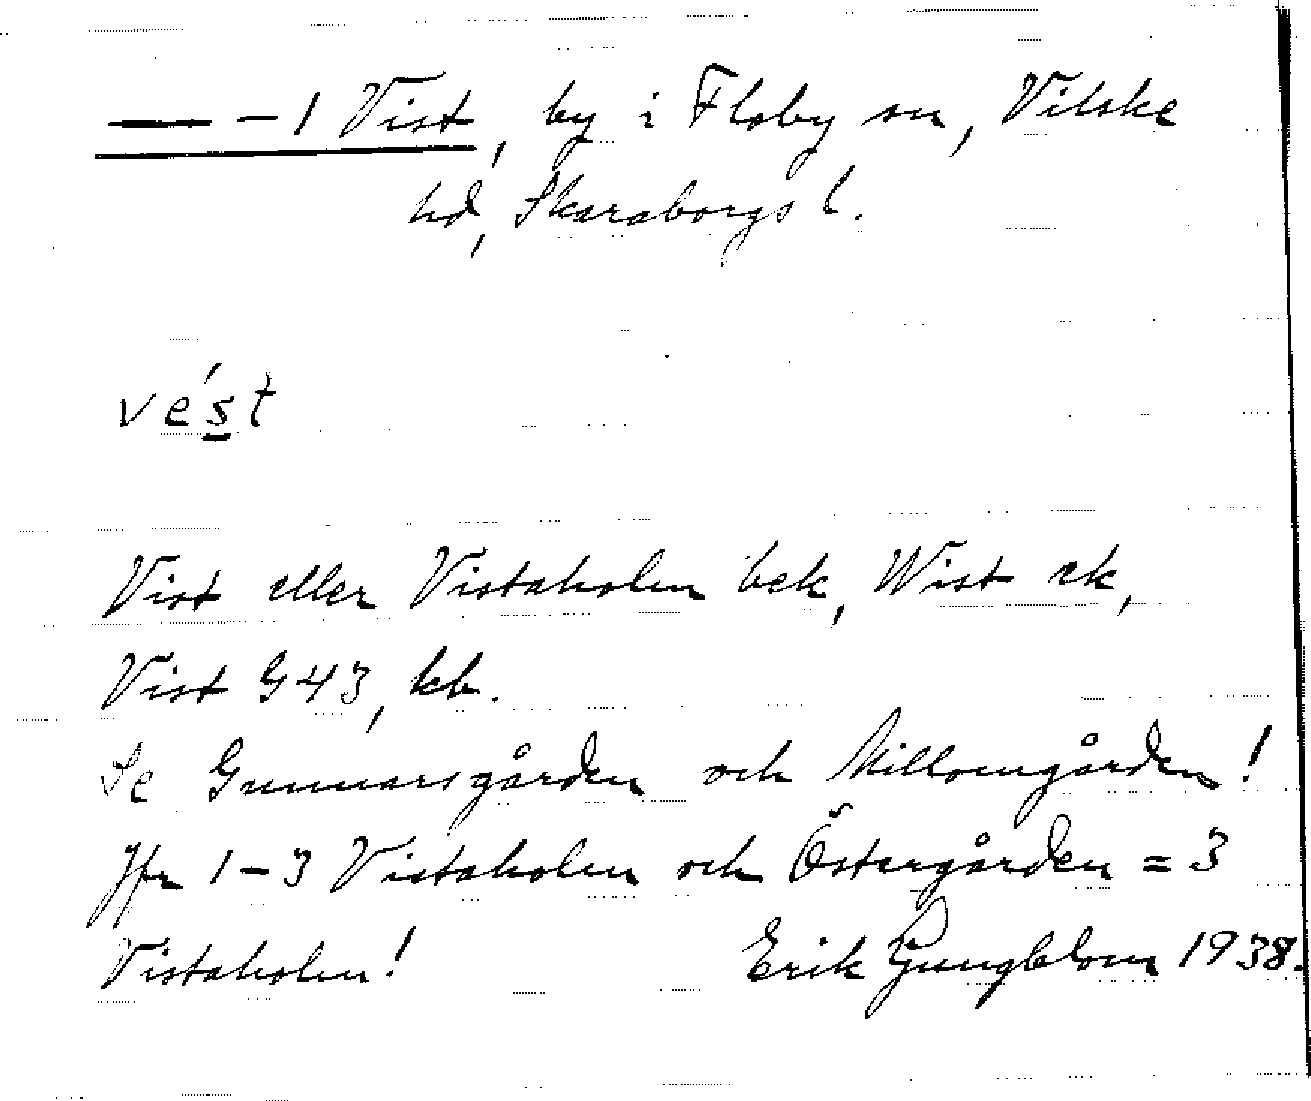 — – 1 Vist, by i Floby sn, Vilske
hd, Skaraborgs l.
vést
Vist eller Vistaholen bek, Wist ek,
Vist G 43, kb.
Se Gunnarsgården och Millomgården!
Jfr 1–3 Vistaholen och Östergården = 3
Vistaholen! Erik Ljungblom 1938.